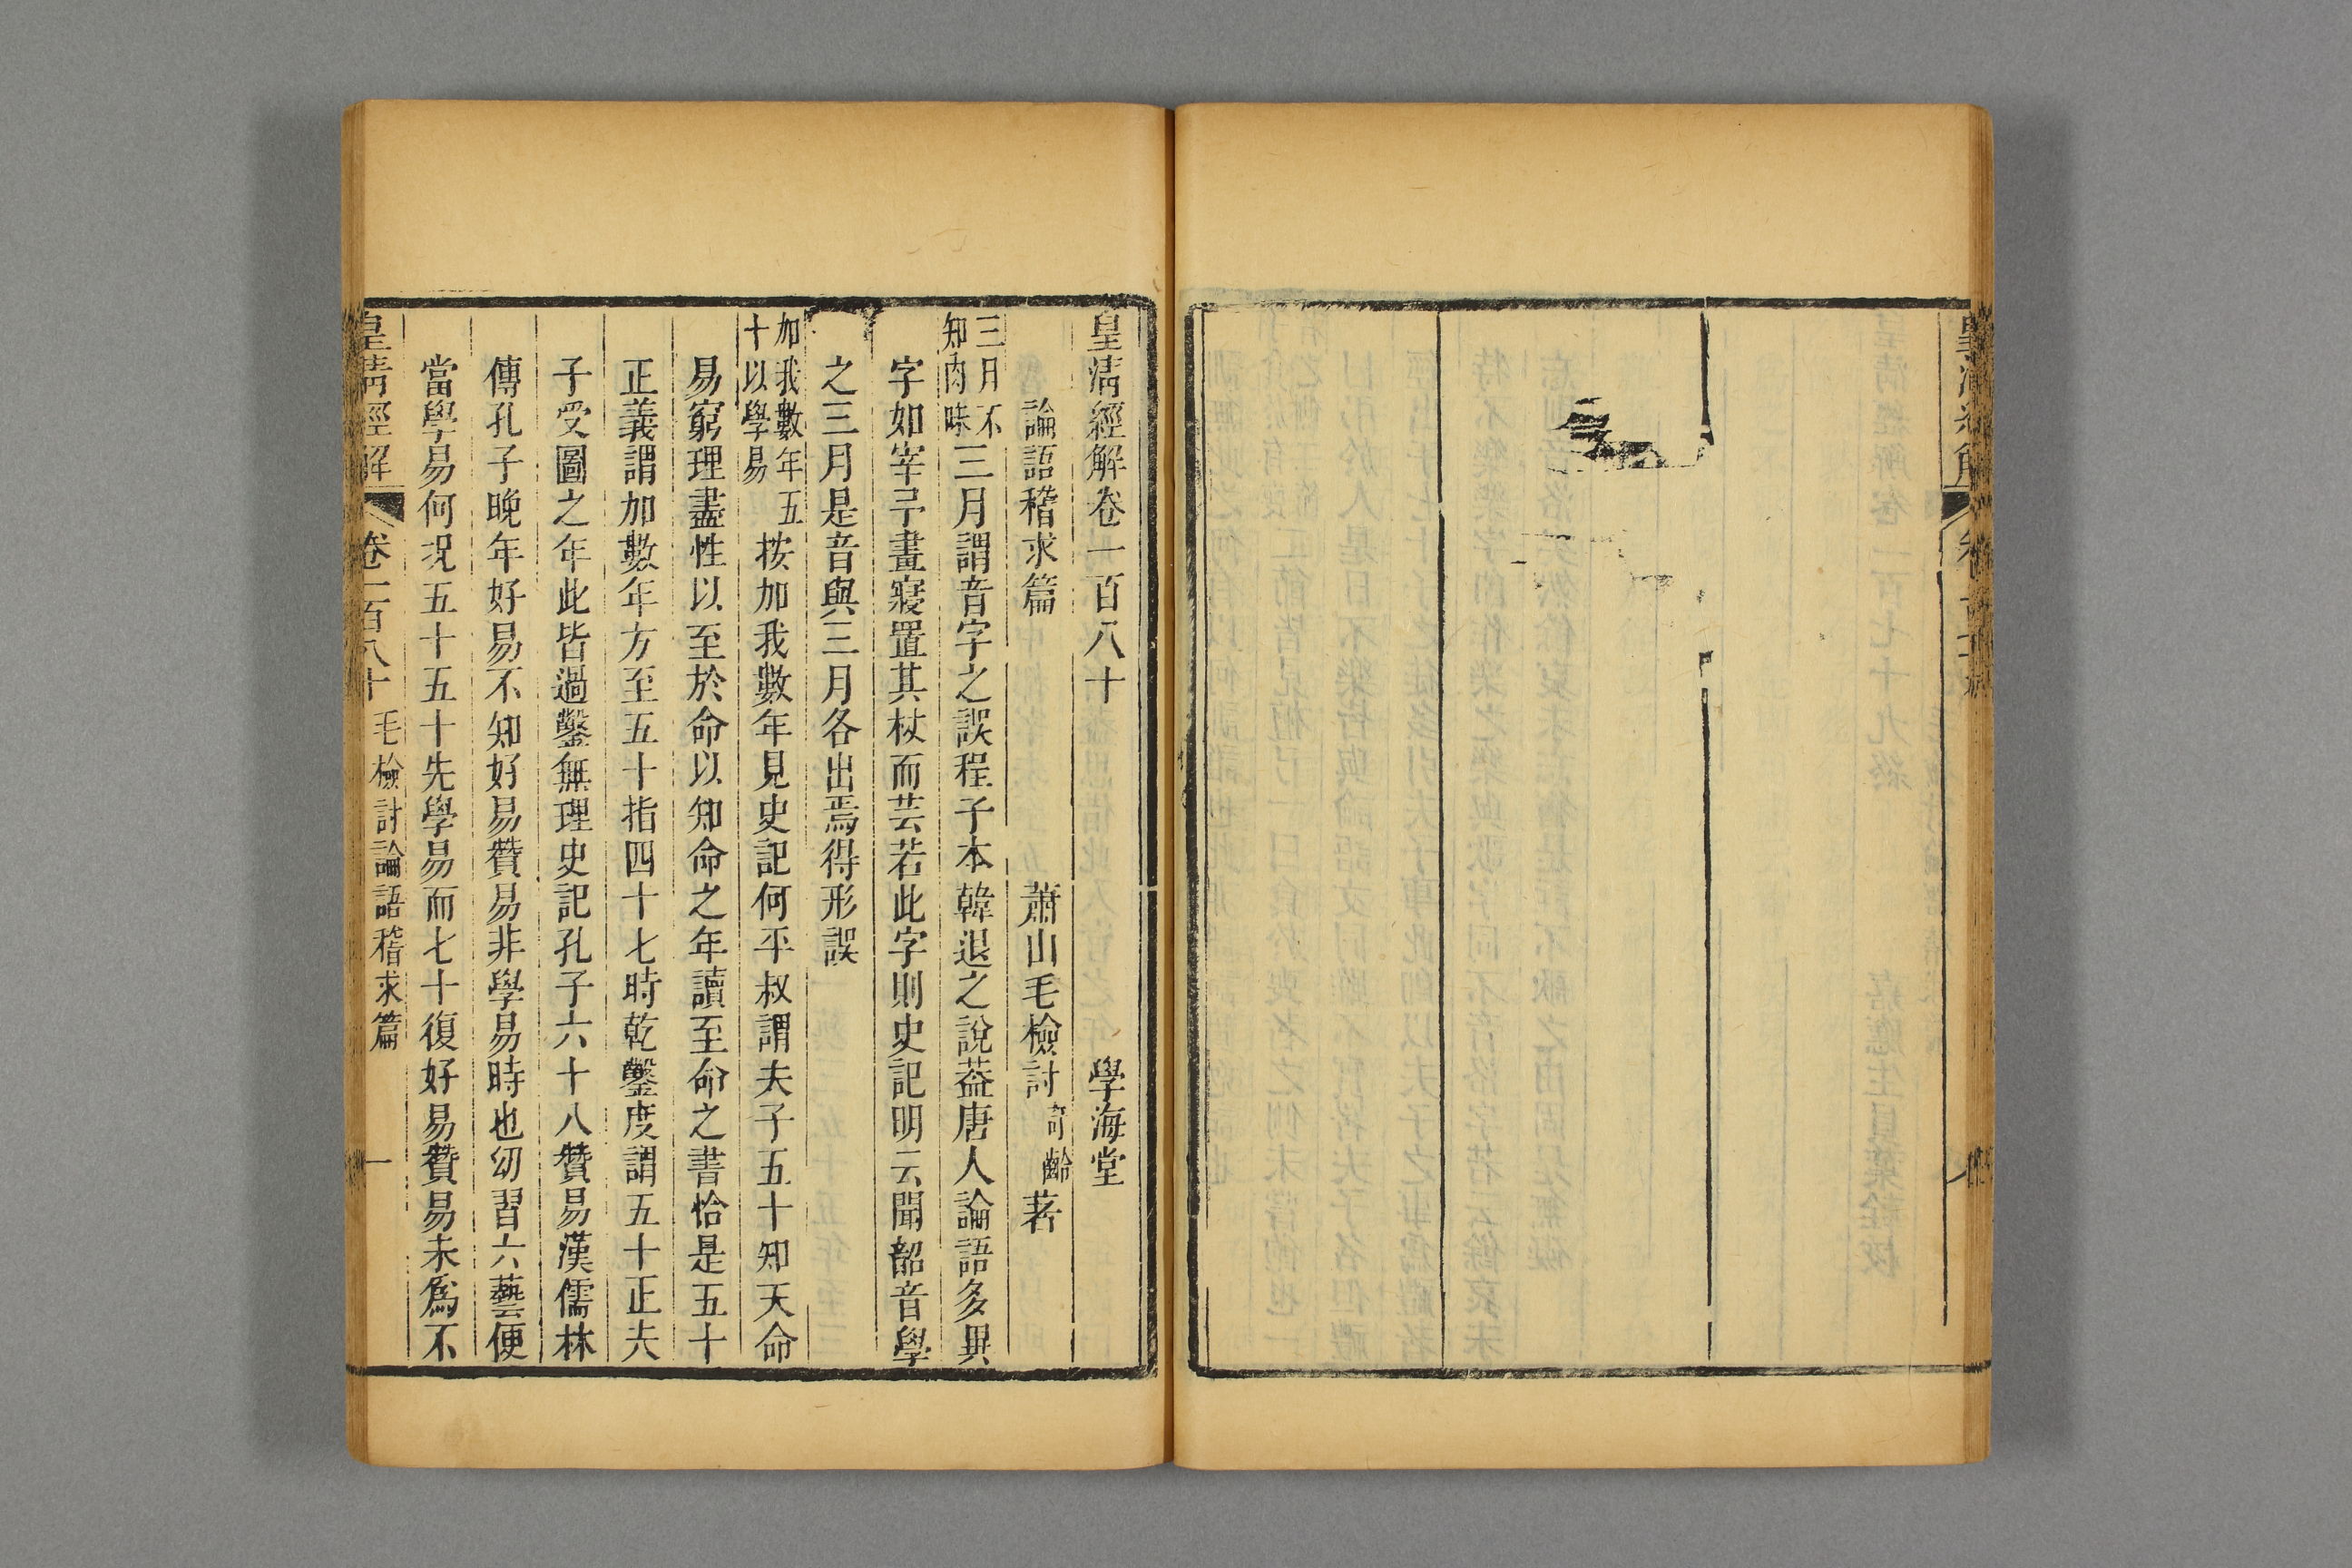 皇清經解卷一百八十 學海堂
論語稽求篇 蕭山毛檢討奇齡著
三月不知肉味 三月謂音字之誤程子本韓退之說葢唐人論語多異
字如宰予晝寢置其杖而芸若此字則史記明云聞韶音學
之三月是音與三月各出焉得形誤
加我數年五十以學易 按加我數年見史記何平叔謂夫子五十知天命
易窮理盡性以至於命以知命之年讀至命之書恰是五十
正義謂加數年方至五十指四十七時乾鑿度謂五十正夫
子受圖之年此皆過鑿無理史記孔子六十八贊易漢儒林
傳孔子晚年好易不知好易贊易非學易時也幼習六藝便
當學易何況五十五十先學易而七十復好易贊易未爲不
皇清經解 卷一百八十 毛檢討論語稽求篇 一